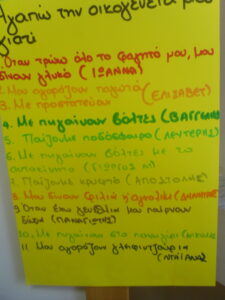 Αγαπώ την οικογένειά μου
γιατί
1. Όταν τρώω όλο το φαγητό μου, μου
δίνουν γλυκό (ΙΩΑΝΝΑ)
2. Μου αγοράζουν παγωτό
(ΕΛΙΣΑΒΕΤ)
3. Με προστατεύουν
4. Με πηγαίνουν βόλτες (ΒΑΓΓΕΛΗΣ)
5. Παίζουμε ποδόσφαιρο (ΛΕΥΤΕΡΗΣ)
6. Με πηγαίνουν βόλτες με το
αυτοκίνητο (ΓΙΩΡΓΟΣ
7. Παίζουμε κρυφτό (ΑΠΟΣΤΟΛΗΣ)
8. Μου δίνουν φιλιά κ' αγκαλιές (ΔΗΜΗΤΡΗΣ)
9. Όταν έχω γενέθλια μου παίρνουν
δώρα (ΠΑΝΑΓΙΩΤΗΣ)
10. Με πηγαίνουν στο πανηγύρι
11. Μου αγοράζουν γλειφιντζούρια